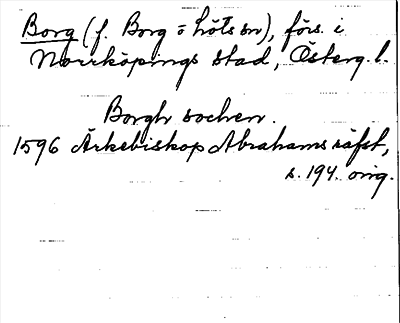 Borg (f. Borg o hölssn), förs. i
Norrköpings stad, Österg. l.
Borgh sochen.
1596 Ärkebiskop Abrahams räfst,
s. 194. orig.